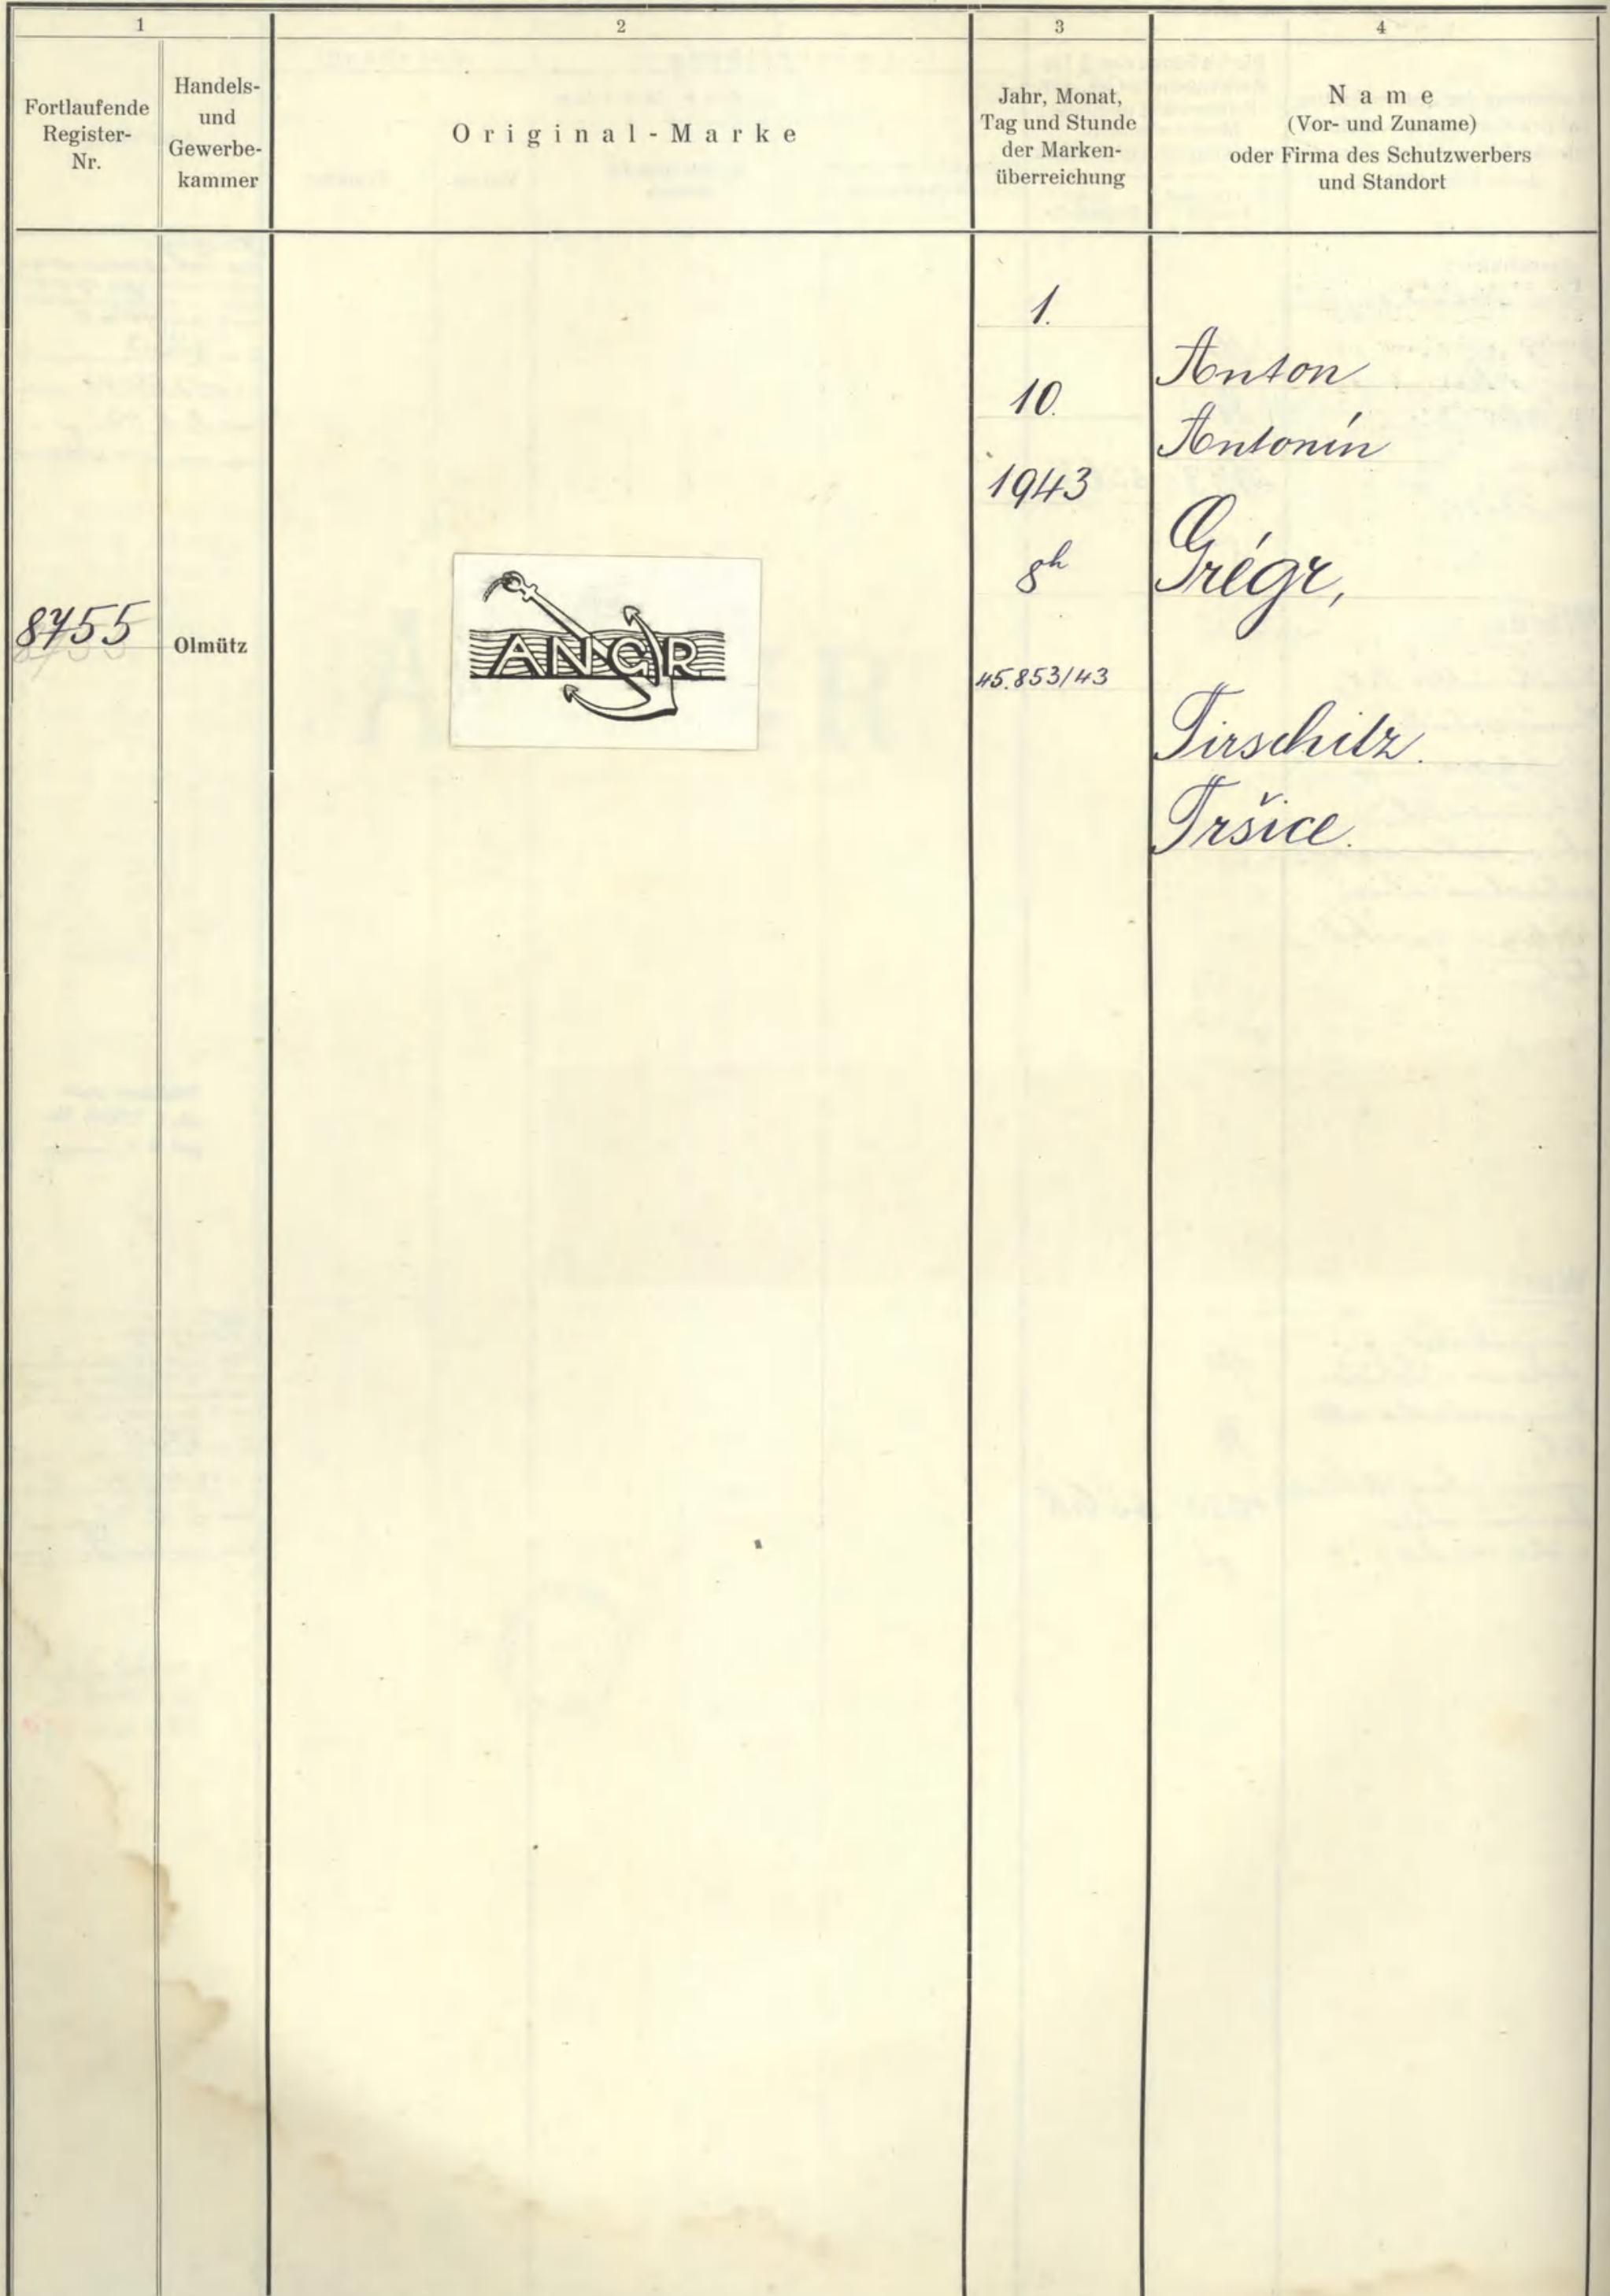 1
2
3
4
Fortlaufende
Register-
Nr.
Handels-
und
Gewerbe-
kammer
Original-Marke
Jahr, Monat,
Tag und Stunde
der Marken-
überreichung
Name
(Vor- und Zuname)
oder Firma des Schutzwerbers
und Standort
8755
Olmütz
ANGR
1.
10.
1943
8h
45.853/43
Anton
Antonín
Grégr,
Tirschitz.
Tršice.